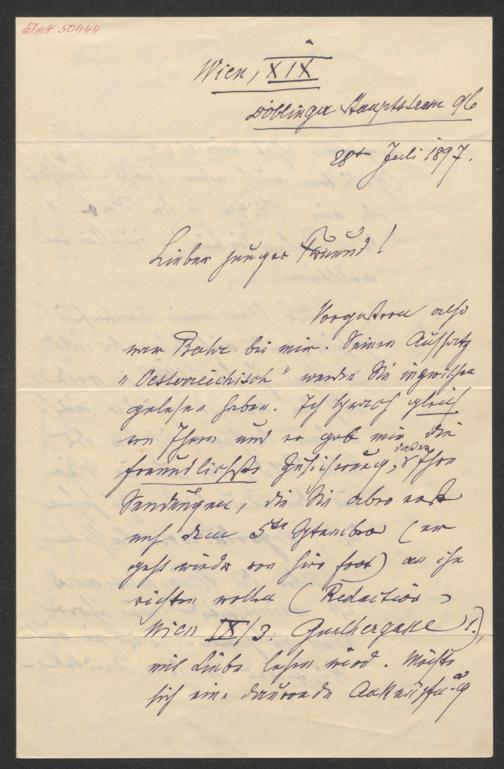 I.N. 50444
Wien, XIX
Döblinger Hauptstrasse 96
28ten Juli 1897.
Lieber junger Freund!
Vorgestern also
war Bahr bei mir. Seinen Aufsatz
"Oesterreichisch" werden Sie inzwischen
gelesen haben. Ich sprach gleich
von Ihnen und er gab mir die
freundlichste Zusicherung, dass er Ihre
Sendungen, die Sie aber erst
nach dem 5ten September (er
geht wieder von hier fort) an ihn
richten wollen (Redaction
Wien IX/3. Günthergasse 1.),
mit Liebe lesen wird. Möchte
sich eine dauernde Anknüpfung